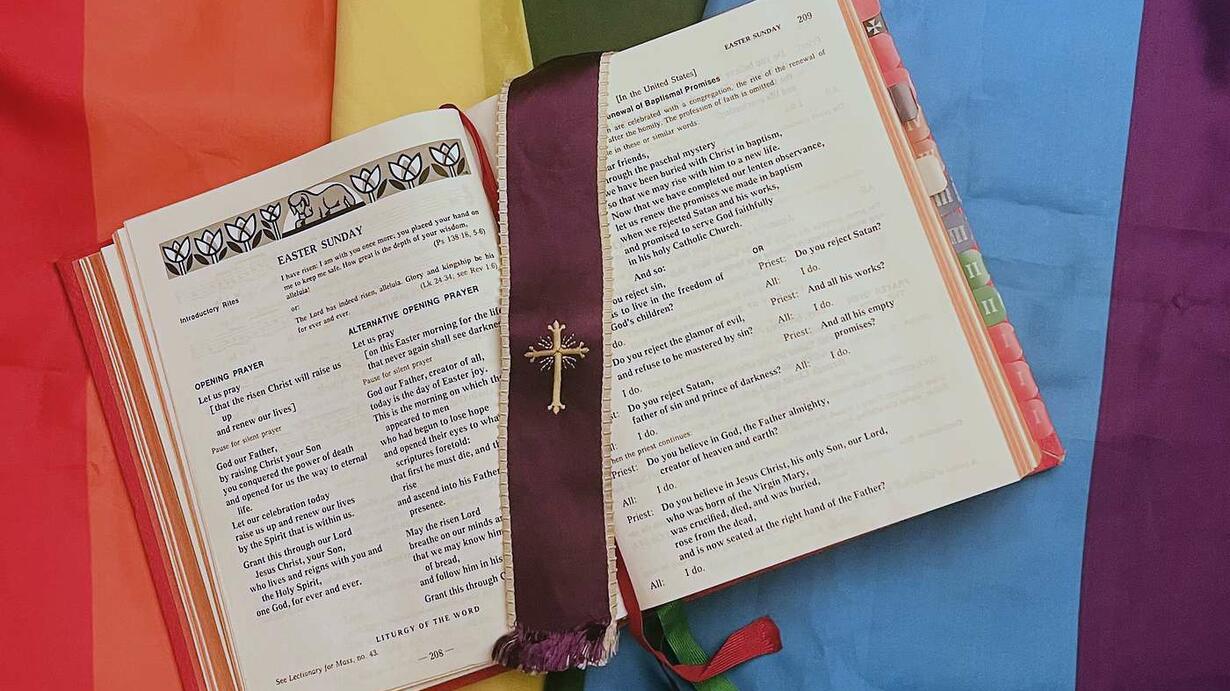 EASTER SUNDAY
I have risen: I am with you once more; you placed your hand on
me to keep me safe. How great is the depth of your wisdom,
alleluia!
(Ps 138:18, 5-6)
or:
The Lord has indeed risen, alleluia. Glory and kingship be his
for ever and ever.
(Lk 24:34; see Rev 1:6)
Introductory Rites
OPENING PRAYER
Let us pray
[that the risen Christ will raise us
up
and renew our lives]
Pause for silent prayer
God our Father,
by raising Christ your Son
you conquered the power of death
and opened for us the way to eternal
life.
Let our celebration today
raise us up and renew our lives
by the Spirit that is within us.
Grant this through our Lord
Jesus Christ, your Son,
who lives and reigns with you and
the Holy Spirit,
one God, for ever and ever.
ALTERNATIVE OPENING PRAYER
Let us pray
[on this Easter morning for the life
that never again shall see
Pause for silent prayer
God our Father, creator of all,
today is the day of Easter joy.
This is the morning on which
appeared to men
who had begun to lose hope
and opened their eyes to
scriptures foretold:
that first he must die, and
rise
and ascend into his Father
presence.
May the risen Lord
breathe on our minds
that we may know him
of bread,
and follow him in his
Grant this through
LITURGY OF THE WORD
See Lectionary for Mass, no. 43.
—208—
EASTER SUNDAY 209
[In the United States]
of Baptismal Promises
are celebrated with a congregation, the rite of the renewal of
after the homily. The profession of faith is omitted.
in these or similar words
friends,
through the paschal mystery
we have been buried with Christ in baptism,
so that we may rise with him to a new life.
Now that we have completed our lenten observance,
let us renew the promises we made in baptism
when we rejected Satan and his works,
and promised to serve God faithfully
in his holy Catholic Church.
And so:
reject sin,
to live in the freedom of
God's children?
Do you reject the glamor of evil,
and refuse to be mastered by sin?
I do.
Do you reject Satan,
father of sin and prince of darkness?
I do.
OR
Priest: Do you reject Satan?
All: I do.
Priest: And all his works?
All: I do.
Priest: And all his empty
promises?
All: I do.
the priest continues:
Priest: Do you believe in God, the Father almighty,
creator of heaven and earth?
All: I do.
Priest: Do you believe in Jesus Christ, his only Son, our Lord,
who was born of the Virgin Mary,
was crucified, died, and was buried,
rose from the dead,
and is now seated at the right hand of the Father?
All: I do.
II
II
I
I
I